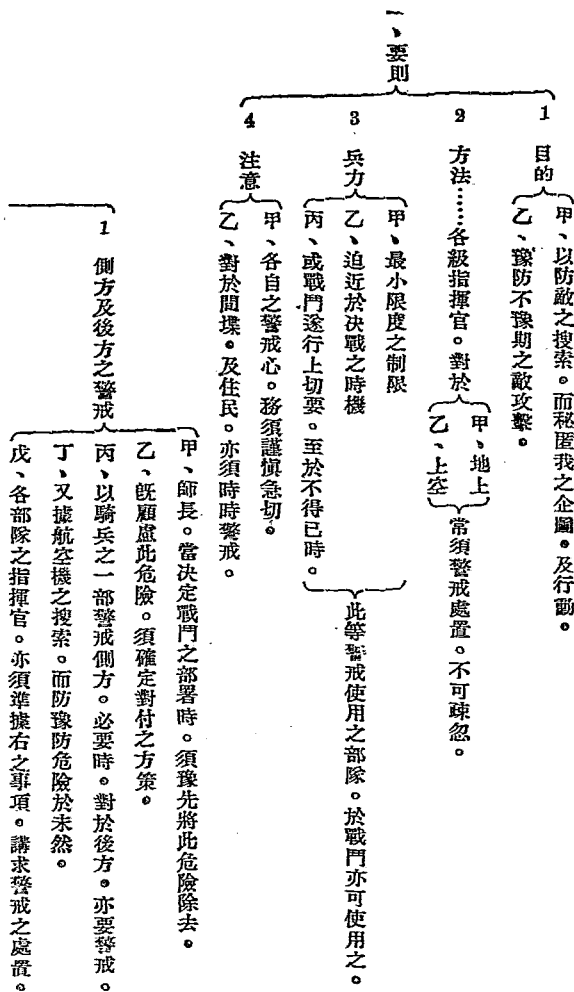 一、要則
1 目的
甲、以防敵之搜索。而秘匿我之企圖。及行動。
乙、豫防不豫期之敵攻擊。
2 方法……各級指揮官。對於
甲、地上
乙、上空
常須警戒處置。不可疎忽。
3 兵力
甲、最小限度之制限
乙、迫近於決戰之時機
丙、或戰鬥遂行上切要。至於不得已時。
此等警戒使用之部隊。於戰鬥亦可使用之。
4 注意
甲、各自之警戒心。務須謹愼急切。
乙、對於間堞。及住民。亦須時時警戒。
1 側方及後方之警戒
甲、師長。當決定戰鬥之部署時。須豫先將此危險除去。
乙、旣顧慮此危險。須確定對付之方策。
丙、以騎兵之一部警戒側方。必要時。對於後方。亦要警戒。
丁、又據航空機之搜索。而防豫防危險於未然。
戊、各部隊之指揮官。亦須準據右之事項。講求警戒之處置。